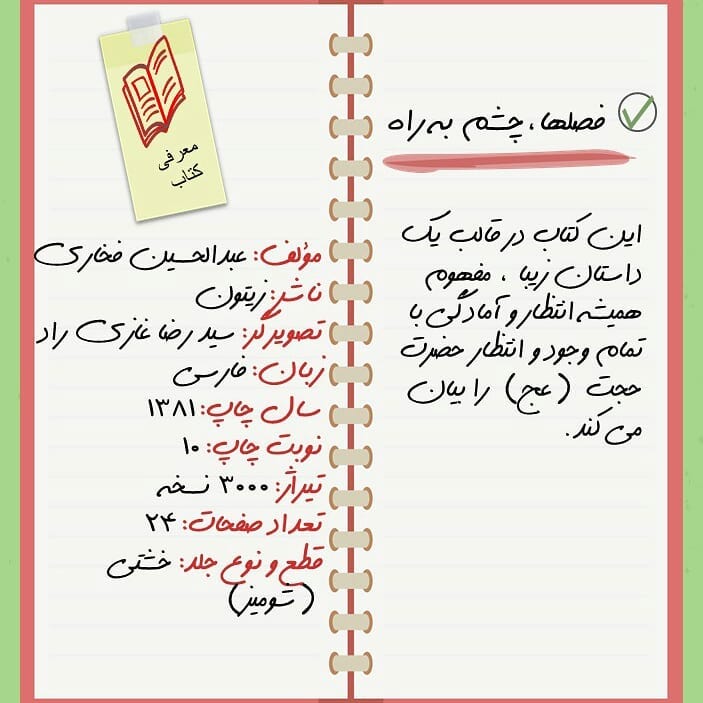 فصلها، چشم به راه
این کتاب در قالب یک
داستان زیبا ، مفهوم
همیشه انتظار و آمادگی با
تمام وجود و انتظار حضرت
حجت (عج) را بیان
می کند.
معرفی
کتاب
مؤلف: عبدالحسین فخاری
ناشر: زیتون
تصویرگر: سید رضا غازی راد
زبان: فارسی
سال چاپ: ۱۳۸۱
نوبت چاپ: ۱۰
تیراژ: ۳۰۰۰ نسخه
تعداد صفحات: ۲۴
قطع و نوع جلد: خشتی
(شومیز)